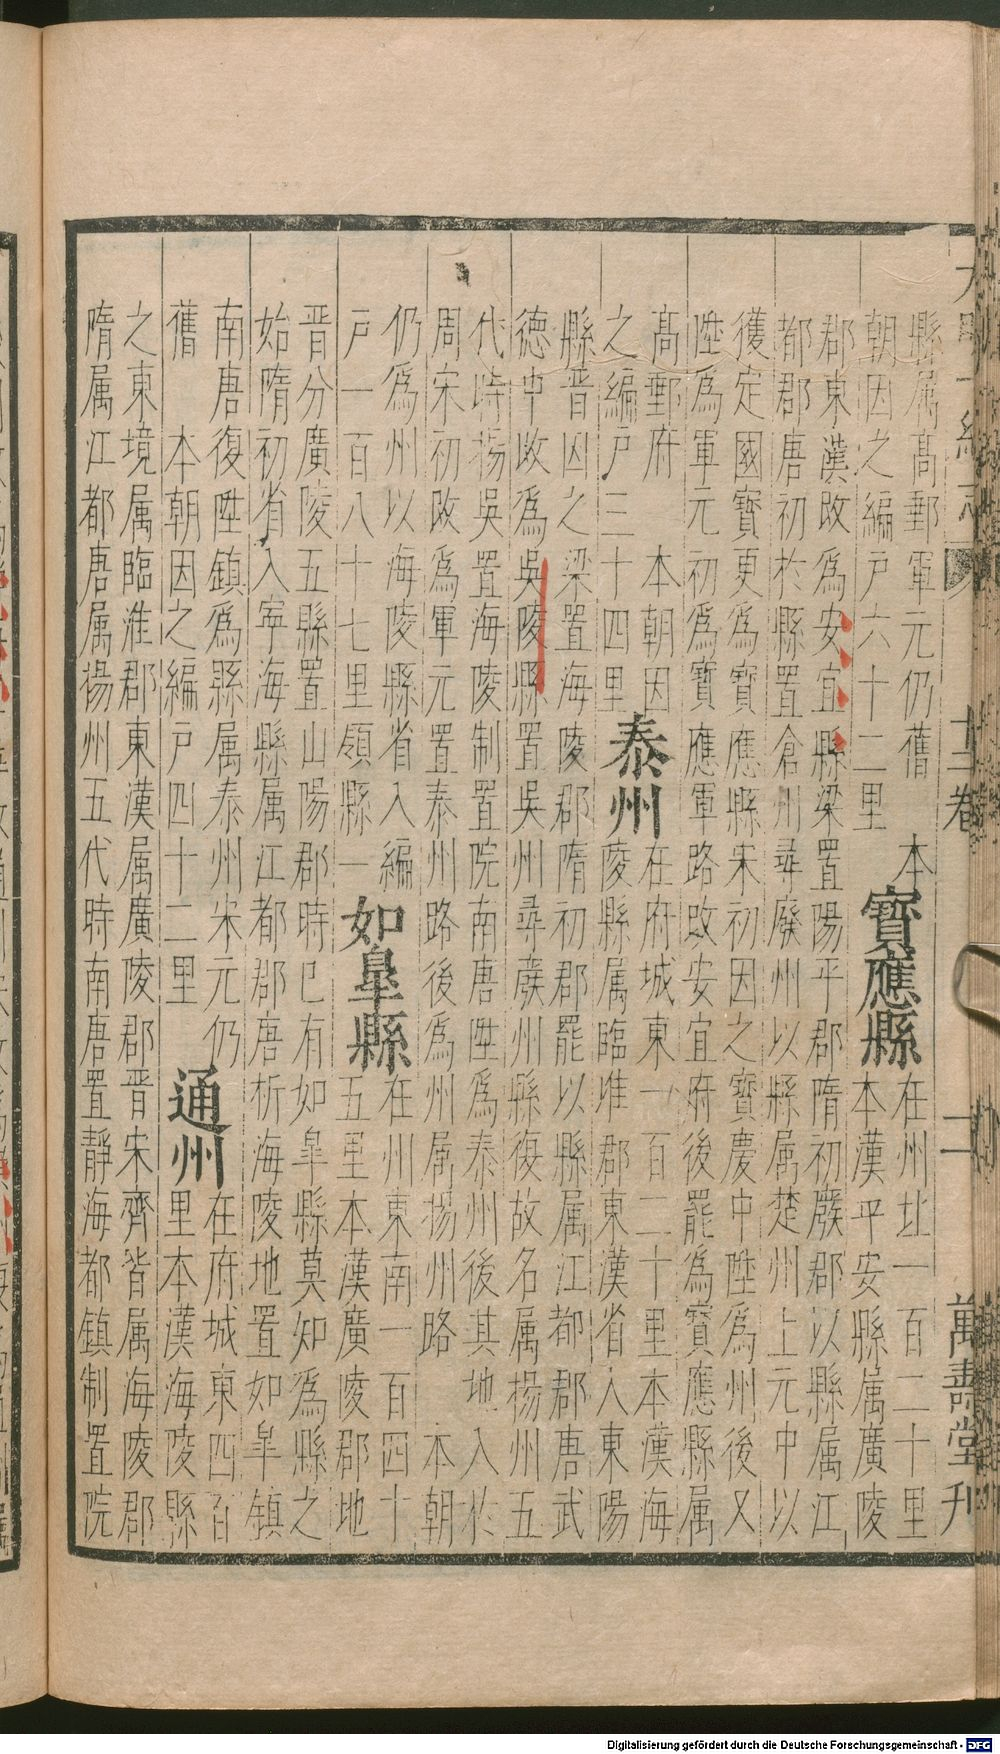 大明一統志 十二卷 二 萬壽堂刊
縣属髙郵軍元仍舊　本
朝因之編戸六十二里
寶應縣
在州北一百二十里
本漢平安縣属廣陵
郡東漢改為安宜縣梁置陽平郡隋初廢郡以縣属江
都郡唐初於縣置倉州尋廢州以縣属楚州上元中以
獲定國寶更為寶應縣宋初因之寶慶中陞為州後又
陞為軍元初為寶應軍路改安宜府後罷為寶應縣属
髙郵府　本朝因
之編戸三十四里
泰州
在府城東一百二十里本漢海
陵縣属臨淮郡東漢省入東陽
縣晋因之梁置海陵郡隋初郡罷以縣属江都郡唐武
徳中改為吳陵縣置吳州尋廢州縣復故名属揚州五
代時揚吳置海陵制置院南唐陞為泰州後其地入於
周宋初改為軍元置泰州路後為州属揚州路　本朝
仍為州以海陵縣省入編
戸一百八十七里領縣一
如臯縣
在州東南一百四十
五里本漢廣陵郡地
晋分廣陵五縣置山陽郡時已有如臯縣莫知為縣之
始隋初省入寧海縣属江都郡唐析海陵地置如臯鎮
南唐復陞鎮為縣属泰州宋元仍
舊　本朝因之編戸四十二里
通州
在府城東四百
里本漢海陵縣
之東境属臨淮郡東漢属廣陵郡晋宋齊皆属海陵郡
隋属江都唐属揚州五代時南唐置靜海都鎮制置院
Digitalisierung gefördert durch die Deutsche Forschungsgemeinschaft - DFG